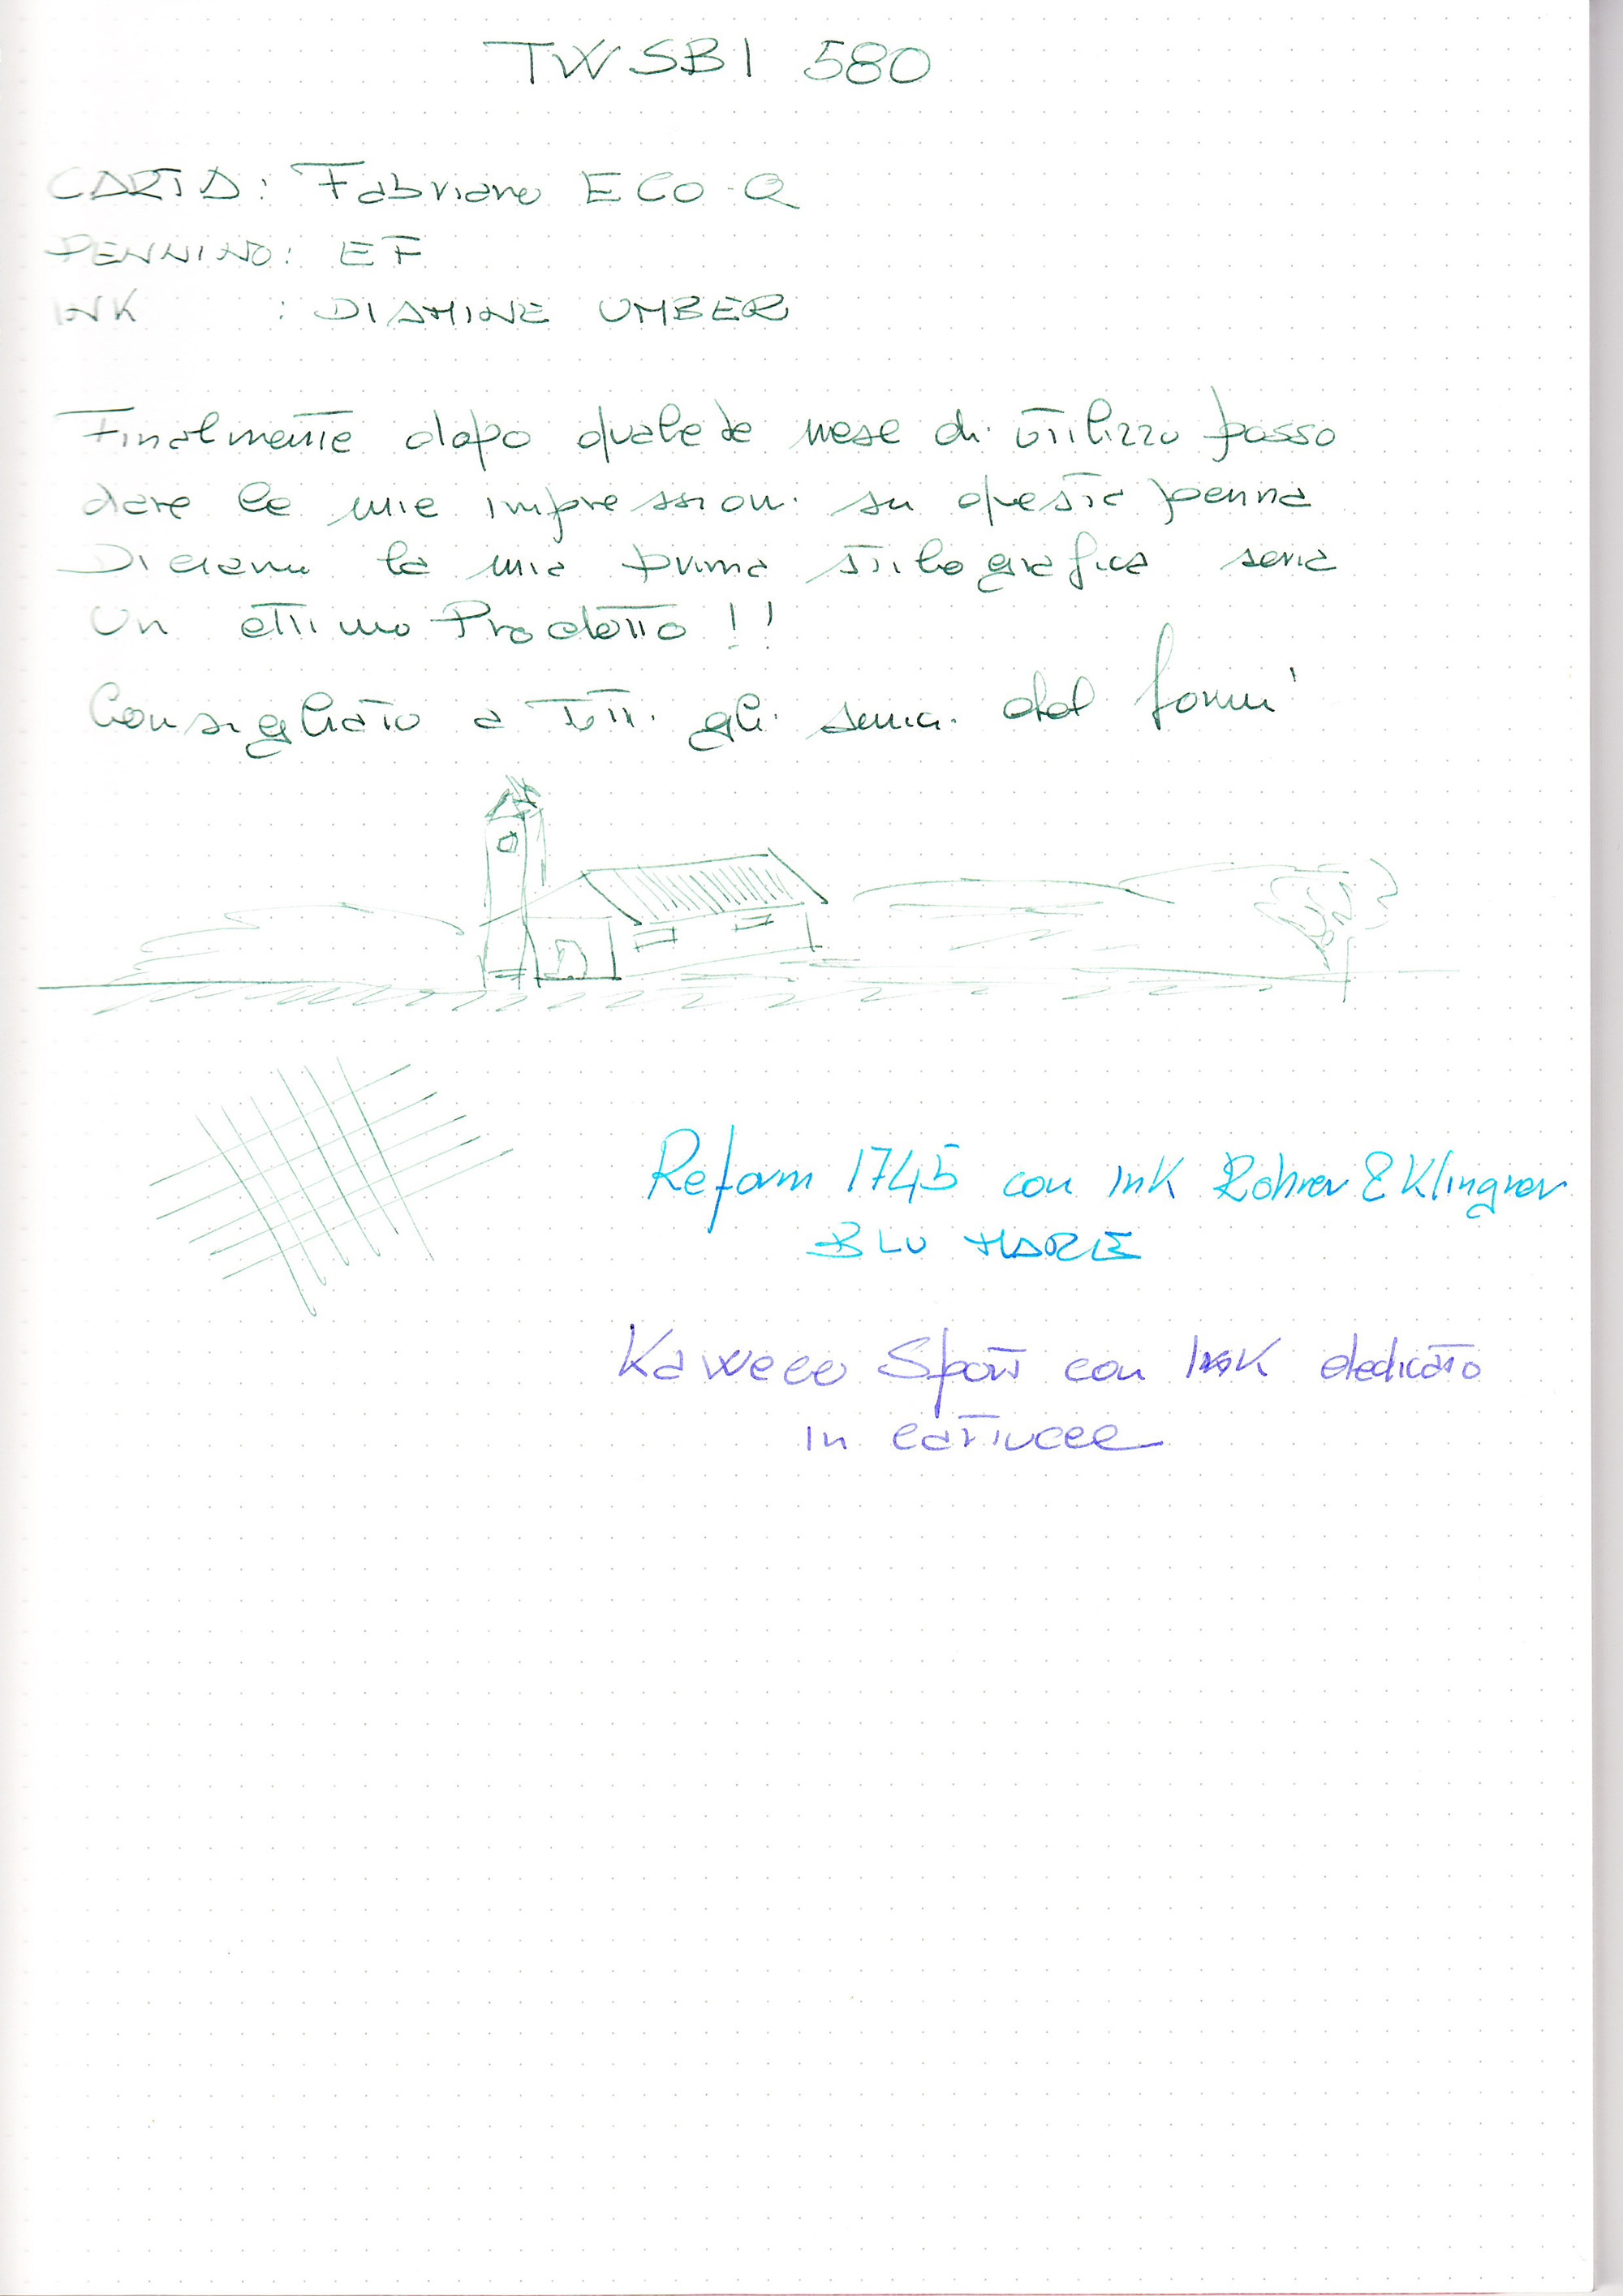 TWSBI 580
CARTA: Fabriano ECO-Q
PENNINO: EF
INK : DIAMINE UMBER
Finalmente dopo qualche mese di utilizzo posso
dare le mie impressioni su questa penna
Diciamo la mia prima stilografica seria
Un ottimo Prodotto !!
Consigliato a tutti gli amici del forum
Reform 1745 con Ink Rohrer & Klingner
BLU MARE
Kaweco Sport con Ink dedicato
in cartucce